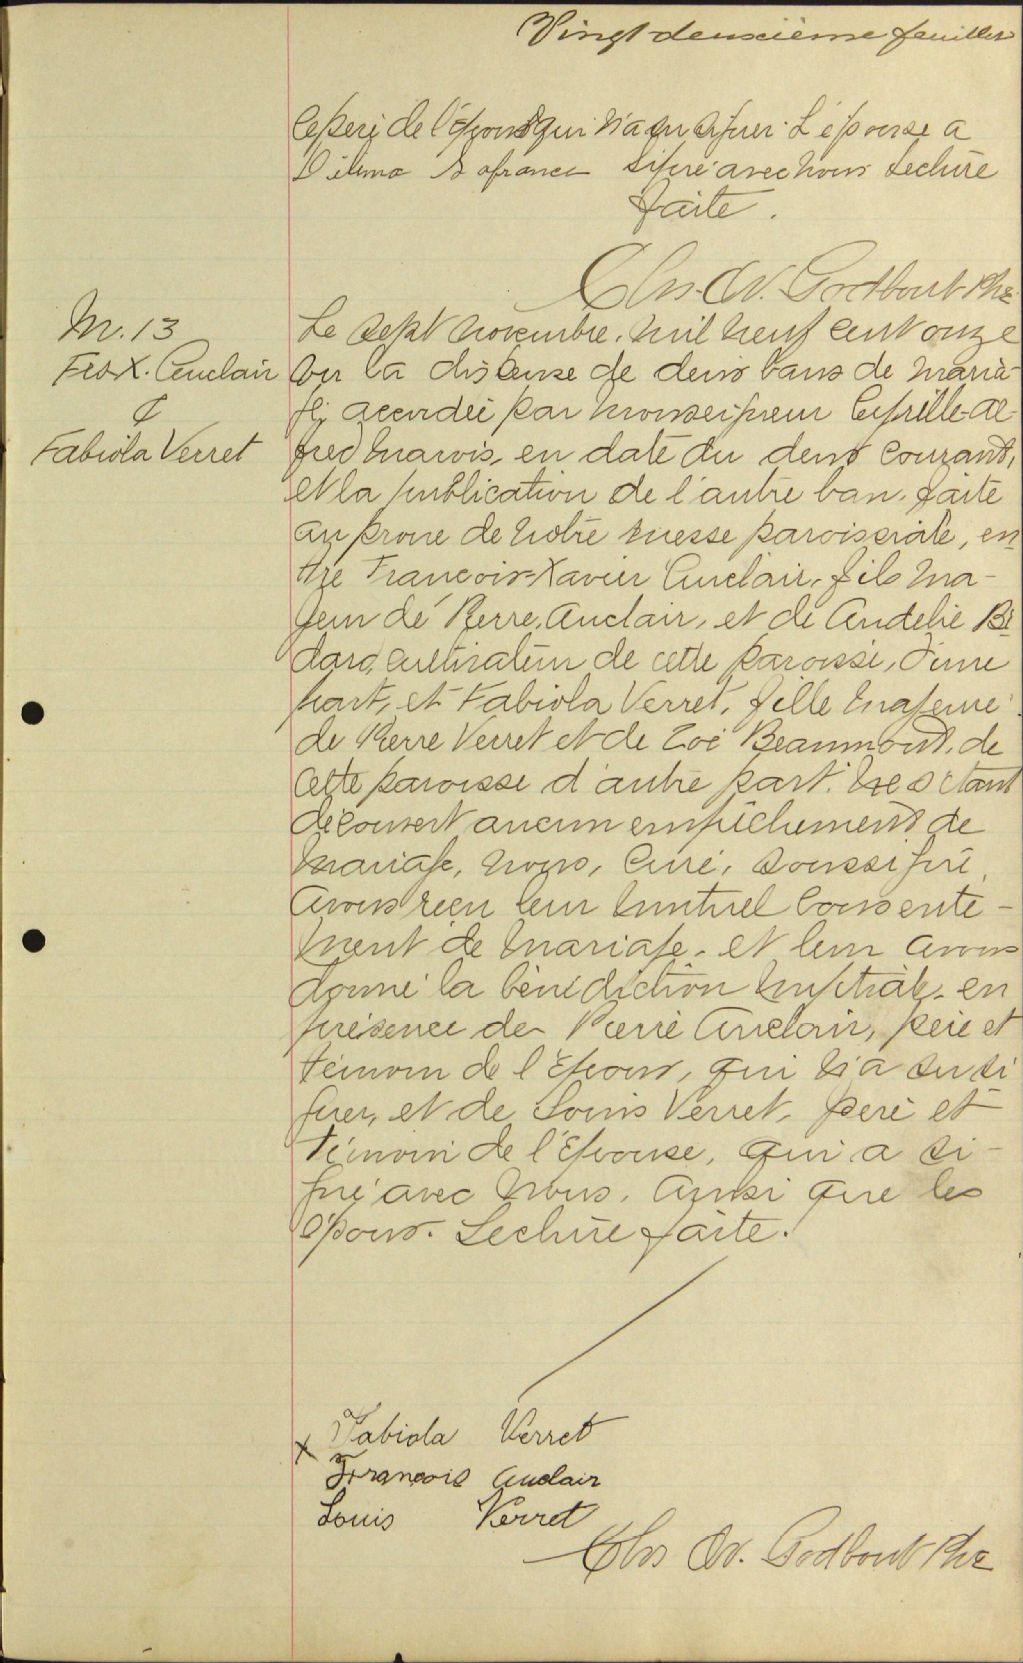 Vingt-deuxième feuillet
le père de l'époux qui n'a su signer. L'épouse a
Délima Lafrance signé avec nous. Lecture
faite.
Chs. Od. Godbout Ptre
M. 13
Frs X. Auclair
&
Fabiola Verret
Le sept novembre, mil neuf cent onze
vu la dispense de deux bans de maria-
ge, accordée par Monseigneur Cyrille-Al-
fred Marois, en date du deux courant,
et la publication de l'autre ban, faite
au prone de notre messe paroissiale, en-
tre François-Xavier Auclair, fils ma-
jeur de Pierre Auclair, et de Bé-
dard, cultivateur de cette paroisse, d'une
part, et Fabiola Verret, fille majeure
de Pierre Verret et de Zoé Beaumont, de
cette paroisse d'autre part. Ne s'étant
découvert aucun empêchement de
mariage, nous, curé, soussigné,
avons reçu leur mutuel consente-
ment de mariage, et leur avons
donné la bénédiction nuptiale, en
présence de Pierre Auclair, père et
témoin de l'époux, qui n'a su si
gner, et de Louis Verret, père et
témoin de l'épouse, qui a si-
gné avec nous, ainsi que les
époux. Lecture faite.
x Fabiola Verret
François Auclair
Louis Verret
Chs Od. Godbout Ptre